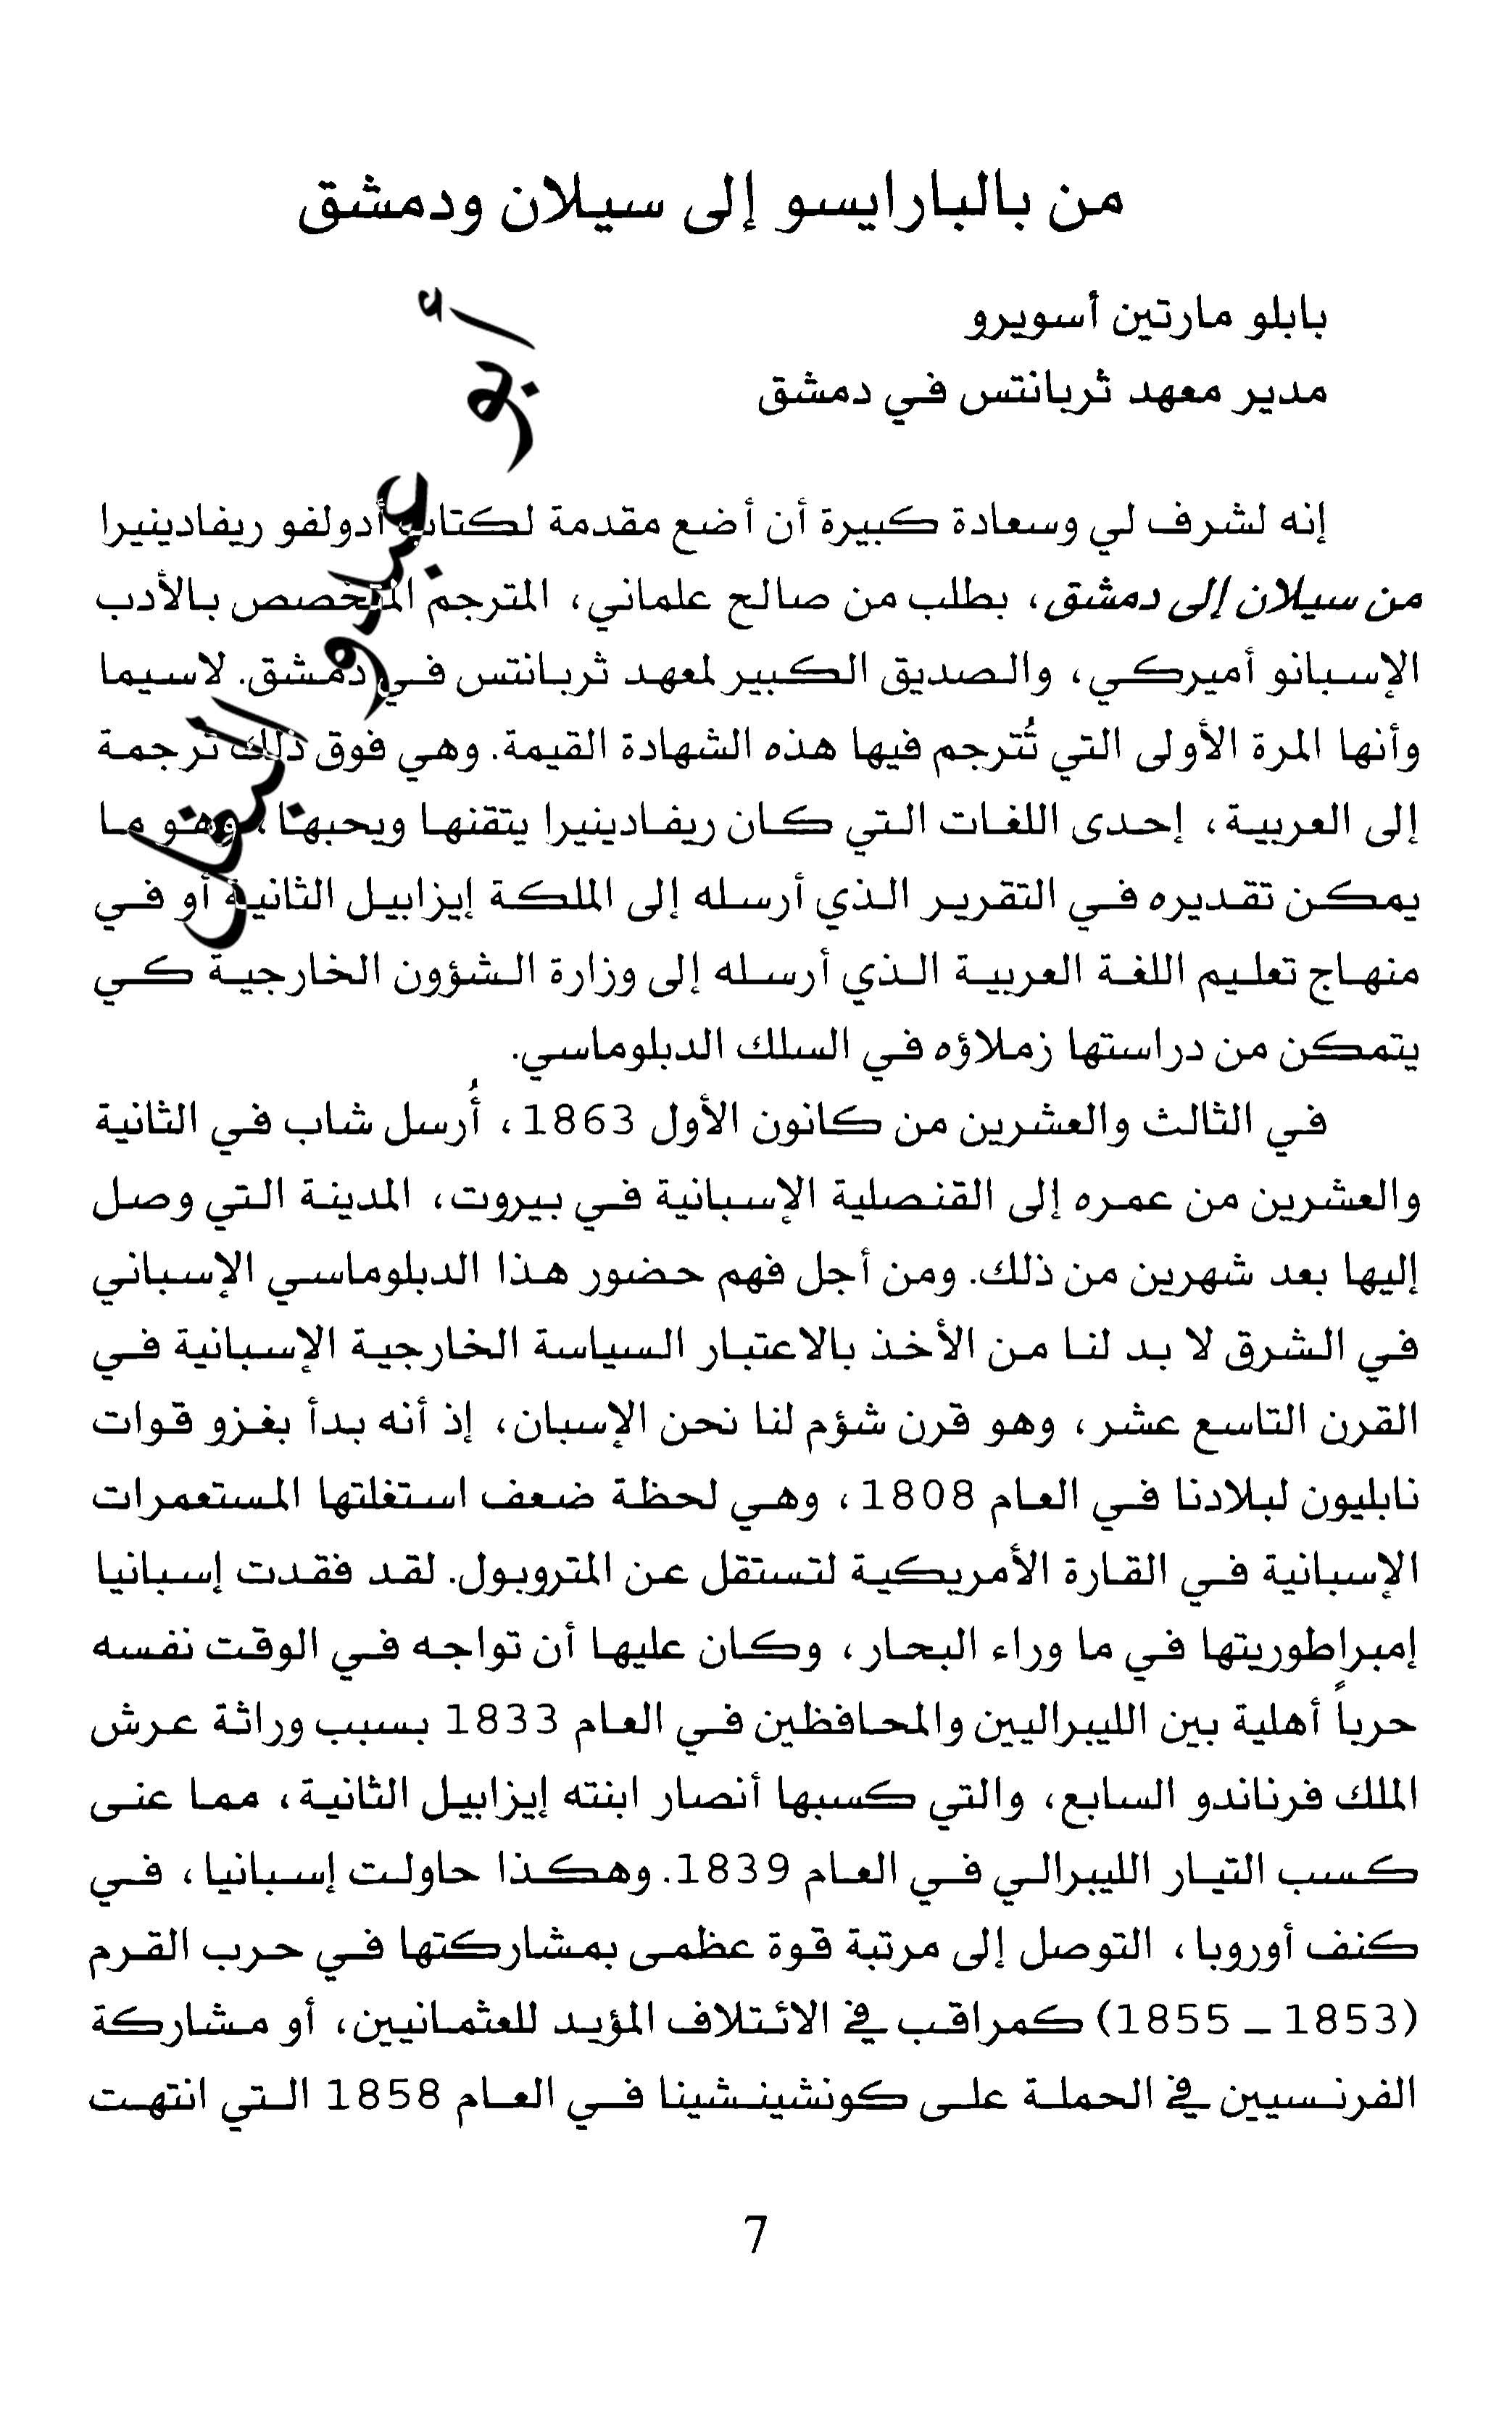 من بالبارايسو إلى سيلان ودمشق
بابلو مارتين أسويرو
مدير معهد ثربانتس في دمشق
إنه لشرف لي وسعادة كبيرة أن أضع مقدمة لكتاب أدولفو ريفادينيرا
من سيلان إلى دمشق، بطلب من صالح علماني، المترجم المتخصص بالأدب
الإسبانو أميركي، والصديق الكبير لمعهد ثربانتس في دمشق. لاسيما
وأنها المرة الأولى التي تُترجم فيها هذه الشهادة القيمة. وهي فوق ذلك ترجمة
إلى العربية، إحدى اللغات التي كان ريفادينيرا يتقنها ويحبها، وهو ما
يمكن تقديره في التقرير الذي أرسله إلى الملكة إيزابيل الثانية أو في
منهاج تعليم اللغة العربية الذي أرسله إلى وزارة الشؤون الخارجية كي
يتمكن من دراستها زملاؤه في السلك الدبلوماسي.
في الثالث والعشرين من كانون الأول 1863، أُرسل شاب في الثانية
والعشرين من عمره إلى القنصلية الإسبانية في بيروت، المدينة التي وصل
إليها بعد شهرين من ذلك. ومن أجل فهم حضور هذا الدبلوماسي الإسباني
في الشرق لا بد لنا من الأخذ بالاعتبار السياسة الخارجية الإسبانية في
القرن التاسع عشر، وهو قرن شؤم لنا نحن الإسبان، إذ أنه بدأ بغزو قوات
نابليون لبلادنا في العام 1808، وهي لحظة ضعف استغلتها المستعمرات
الإسبانية في القارة الأمريكية لتستقل عن المتروبول. لقد فقدت إسبانيا
إمبراطوريتها في ما وراء البحار، وكان عليها أن تواجه في الوقت نفسه
حرباً أهلية بين الليبراليين والمحافظين في العام 1833 بسبب وراثة عرش
الملك فرناندو السابع، والتي كسبها أنصار ابنته إيزابيل الثانية، مما عنى
كسب التيار الليبرالي في العام 1839. وهكذا حاولت إسبانيا، في
كنف أوروبا، التوصل إلى مرتبة قوة عظمى بمشاركتها في حرب القرم
(1853 ـ 1855) كمراقب في الائتلاف المؤيد للعثمانيين، أو مشاركة
الفرنسيين في الحملة على كونشينشينا في العام 1858 التي انتهت
7
أبو عبدو البغل